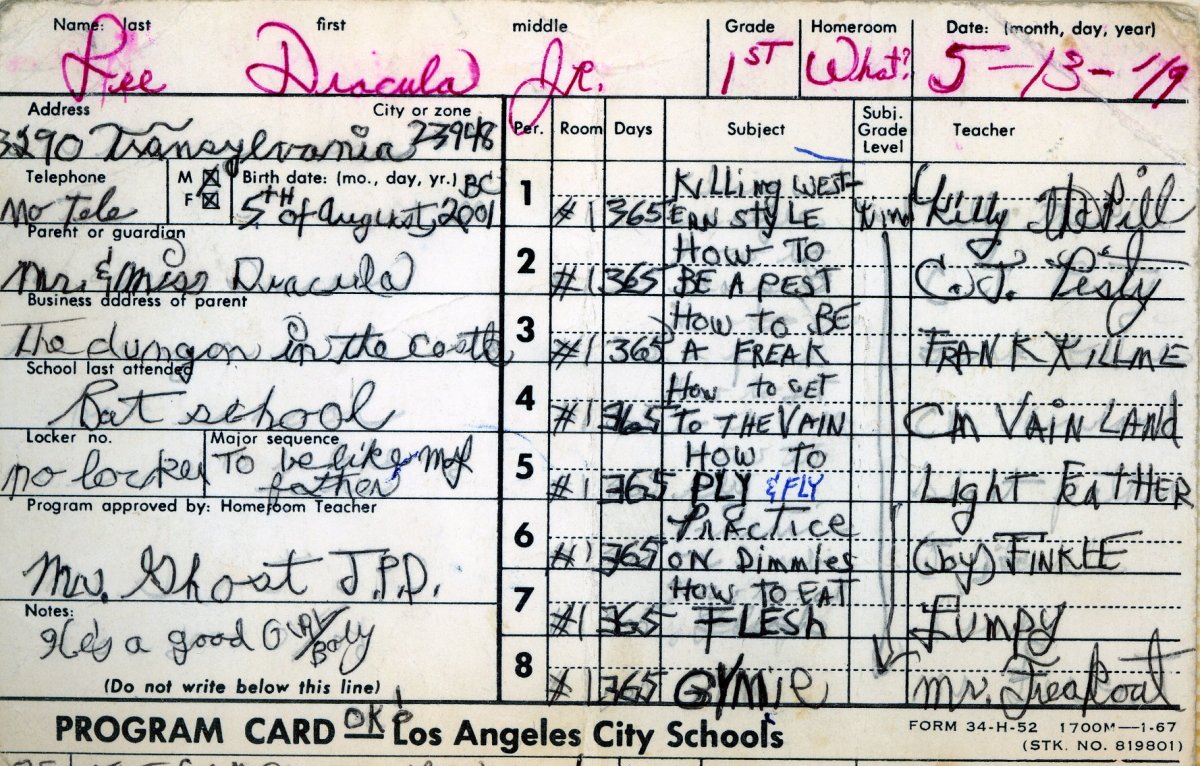 Name: last first middle Grade Homeroom Date: (month, day, year)
Lee Dracula Jr. 1ST What? 5-13-
Address City or zone
3290 Transylvania 23948
Telephone M F Birth date: (mo., day, yr.) BC
no tele 5TH of August, 2001
Parent or guardian
Mr. & Miss Dracula
Business address of parent
The dungon in the castle
School last attended
Bat school
Locker no. Major sequence
no locker To be like my
father
Program approved by: Homeroom Teacher
Mr. Ghost J.P.D.
Notes:
He's a good
Boly
(Do not write below this line)
Per. Room Days Subject Subj. Grade Level Teacher
1 KILLING WEST-
#1 365 ERN STYLE Kind Killy McPill
2 HOW TO
#1 365 BE A PEST C.J. "Pesty
3 HOW TO BE
#1 365 A FREAK FRANK KILLME
4 HOW TO GET
#1 365 TO THE VAIN CM VAIN LAND
5 HOW TO
#1 365 PLY & FLY Light FEATHER
6 PRACTICE
#1 365 ON Dimmies (by) FINKLE
7 HOW TO EAT
#1 365 FLESH Lumpy
8
#1 365 GYMIE Mr.
PROGRAM CARD OK Los Angeles City Schools
FORM 34-H-52 1700M—1-67
(STK. NO. 819801)